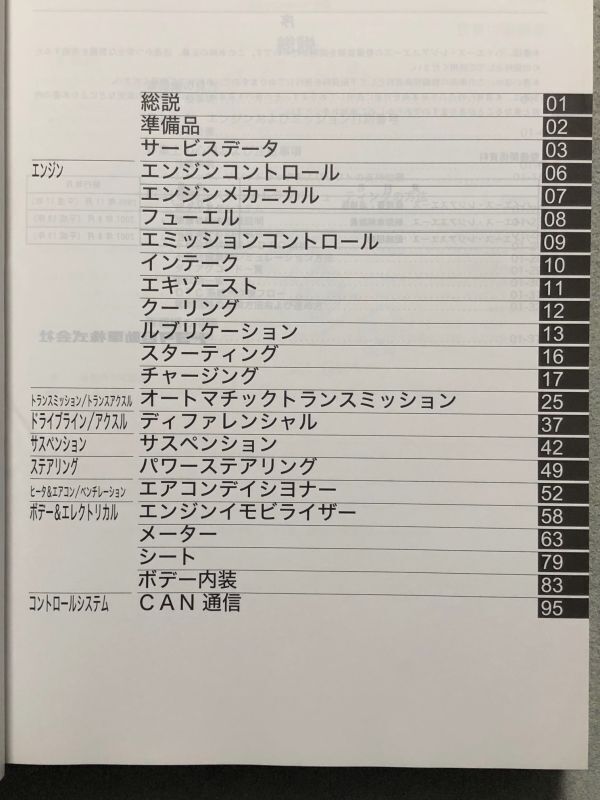 総説 01
準備品 02
サービスデータ 03
エンジン エンジンコントロール 06
エンジンメカニカル 07
フューエル 08
エミッションコントロール 09
インテーク 10
エキゾースト 11
クーリング 12
ルブリケーション 13
スターティング 16
チャージング 17
トランスミッション/トランスアクスル オートマチックトランスミッション 25
ドライブライン/アクスル ディファレンシャル 37
サスペンション サスペンション 42
ステアリング パワーステアリング 49
ヒータ&エアコン/ベンチレーション エアコンデイシヨナー 52
ボデー&エレクトリカル エンジンイモビライザー 58
メーター 63
シート 79
ボデー内装 83
コントロールシステム CAN 通信 95